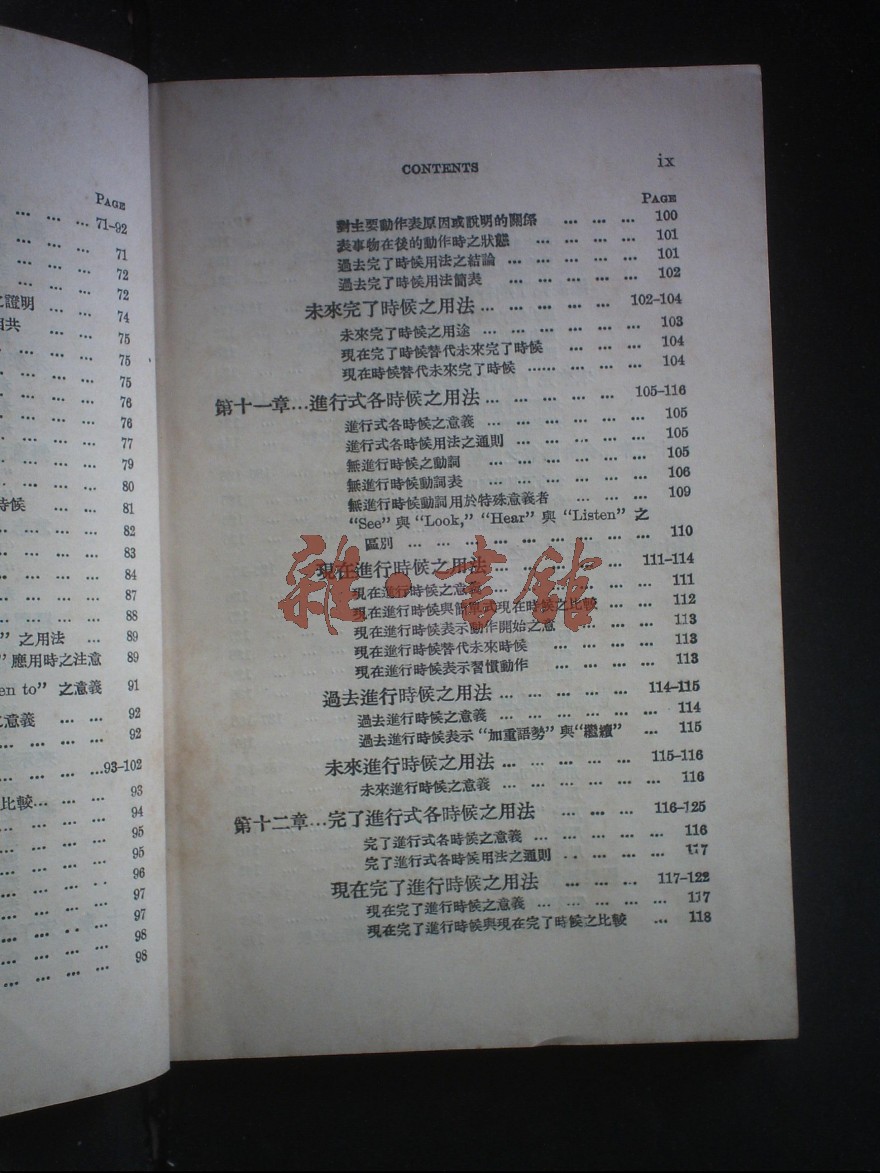 PAGE
... ... ... 71-92
... ... 71
... ... 72
... ... 72
之證明 ... ... 74
相共
... ... ... 75
... ... ... 75
... ... ... 75
... ... ... 76
... ... ... 76
... ... ... 77
... ... ... 79
... ... ... 80
時候 ... ... 81
... ... ... 82
... ... ... 83
... ... ... 84
... ... ... 87
... ... ... 88
” 之用法 ... 89
” 應用時之注意 89
en to” 之意義 91
之意義 ... ... 92
... ... ... ... 92
... ... ... ...93-102
比較... ... ... 93
... ... ... ... 94
... ... ... ... 95
... ... ... ... 95
... ... ... ... 96
... ... ... ... 97
... ... ... ... 97
... ... ... ... 98
... ... ... ... 98
CONTENTS ix
PAGE
對主要動作表原因或說明的關係 ... ... ... 100
表事物在後的動作時之狀態 ... ... ... ... 101
過去完了時候用法之結論 ... ... ... ... ... 101
過去完了時候用法簡表 ... ... ... ... ... 102
未來完了時候之用法 ... ... ... ... ... 102-104
未來完了時候之用途 ... ... ... ... ... 103
現在完了時候替代未來完了時候 ... ... ... 104
現在時候替代未來完了時候 ...... ... ... ... 104
第十一章...進行式各時候之用法 ... ... ... ... ... 105-116
進行式各時候之意義 ... ... ... ... ... ... 105
進行式各時候用法之通則 ... ... ... ... ... 105
無進行時候之動詞 ... ... ... ... ... ... 105
無進行時候動詞表 ... ... ... ... ... ... 106
無進行時候動詞用於特殊意義者 ... ... ... 109
“See” 與 “Look,” “Hear” 與 “Listen” 之
區別 ... ... ... ... ... ... ... ... ... 110
現在進行時候之用法 ... ... ... ... ... 111-114
現在進行時候之意義 ... ... ... ... ... ... 111
現在進行時候與簡單式現在時候之比較 ... ... 112
現在進行時候表示動作開始之意 ... ... ... 113
現在進行時候替代未來時候 ... ... ... ... 113
現在進行時候表示習慣動作 ... ... ... ... 113
過去進行時候之用法 ... ... ... ... ... 114-115
過去進行時候之意義 ... ... ... ... ... ... 114
過去進行時候表示 “加重語勢” 與 “繼續” ... 115
未來進行時候之用法 ... ... ... ... ... 115-116
未來進行時候之意義 ... ... ... ... ... ... 116
第十二章...完了進行式各時候之用法 ... ... ... 116-125
完了進行式各時候之意義 ... ... ... ... ... 116
完了進行式各時候用法之通則 ... ... ... ... 117
現在完了進行時候之用法 ... ... ... 117-122
現在完了進行時候之意義 ... ... ... ... ... 117
現在完了進行時候與現在完了時候之比較 ... 118
雜·書館